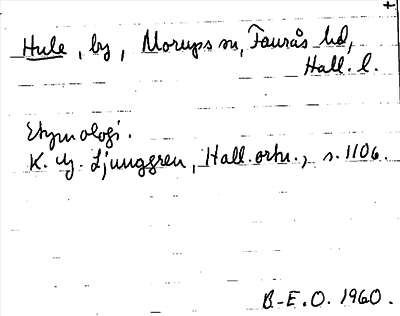 Hule, by, Morups sn, Faurås hd,
Hall. l.
Etymologi.
K. G. Ljunggren, Hall. ortn., s. 110 6.
B-E.O. 1960.